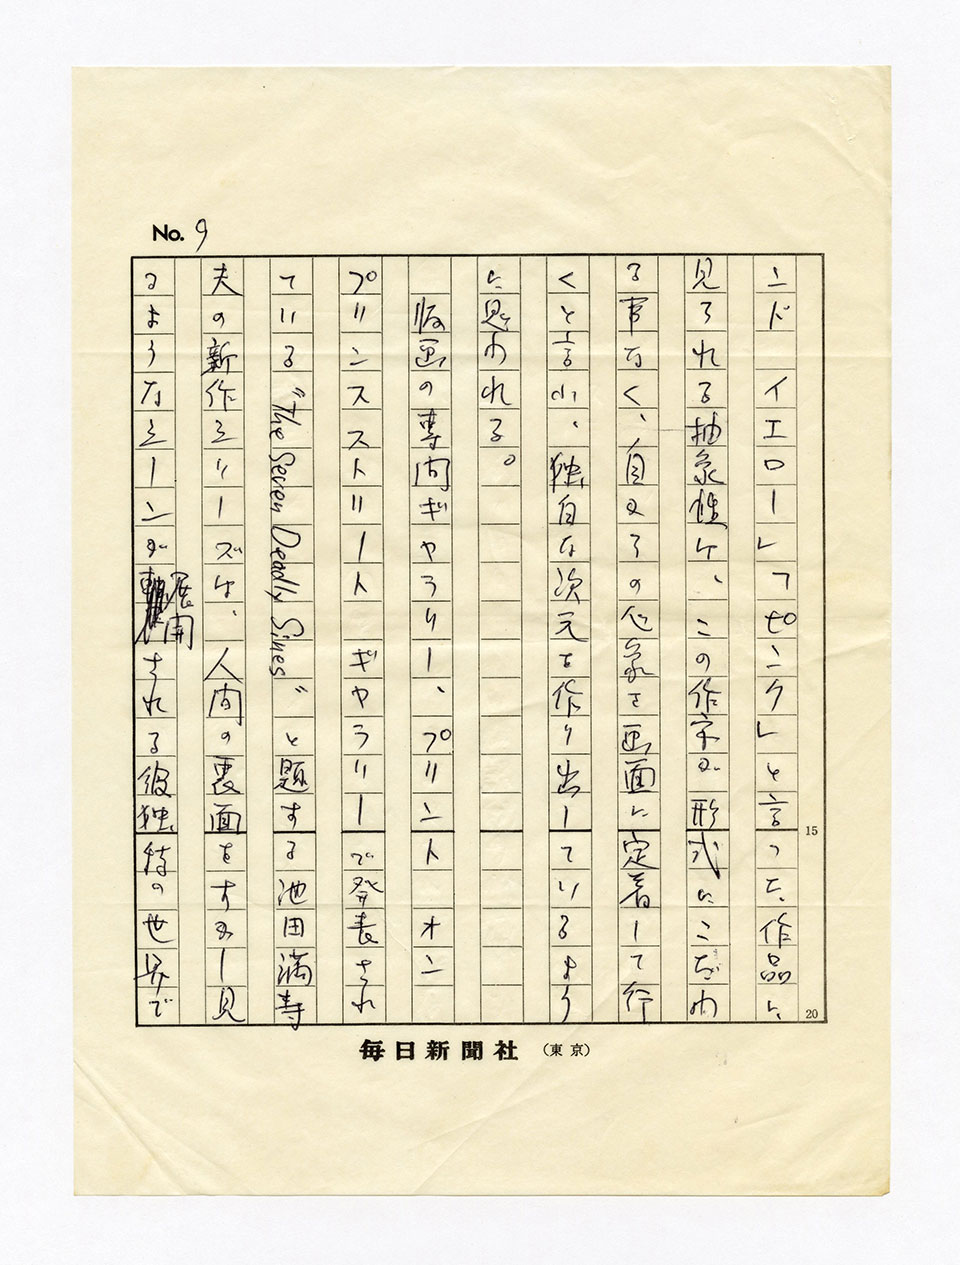 No. 9
ンド イエロー」「ピンク」と言った、作品に
見られる抽象性は、この作家が形式にこだわ
る事なく、自からの心象を画面に定着して行
くと言ふ、独自な次元を作り出しているよう
に思われる。
版画の専門ギャラリー、プリント オン
プリンスストリート ギャラリーで発表され
ている "The Seven Deadly Sines" と題する池田満寿
夫の新作シリーズは、人間の裏面をすかし見
るようなシーンが展開される彼独特の世界で
15
20
毎日新聞社 (東京)